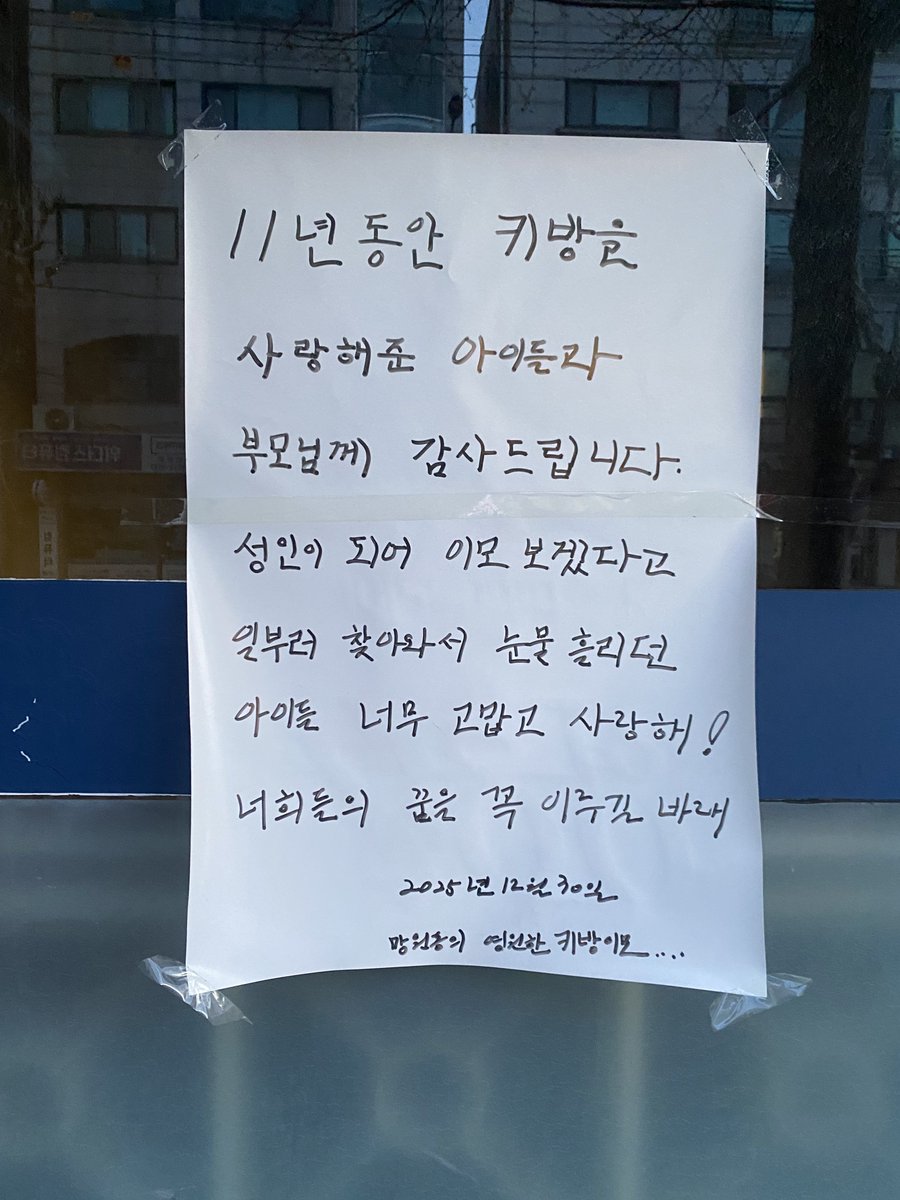 11년 동안 키방을
사랑해준 아이들과
부모님께 감사드립니다.
성인이 되어 이모 보겠다고
일부러 찾아와서 눈물 흘리던
아이들 너무 고맙고 사랑해!
너희들의 꿈을 꼭 이루길 바래
2025년 12월 30일
망원동의 영원한 키방이모....